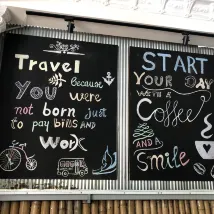 Travel
because
YOU were
not born just
to pay bills AND
Work
START
YOUR DAY
WITH A
Coffee
AND A
Smile